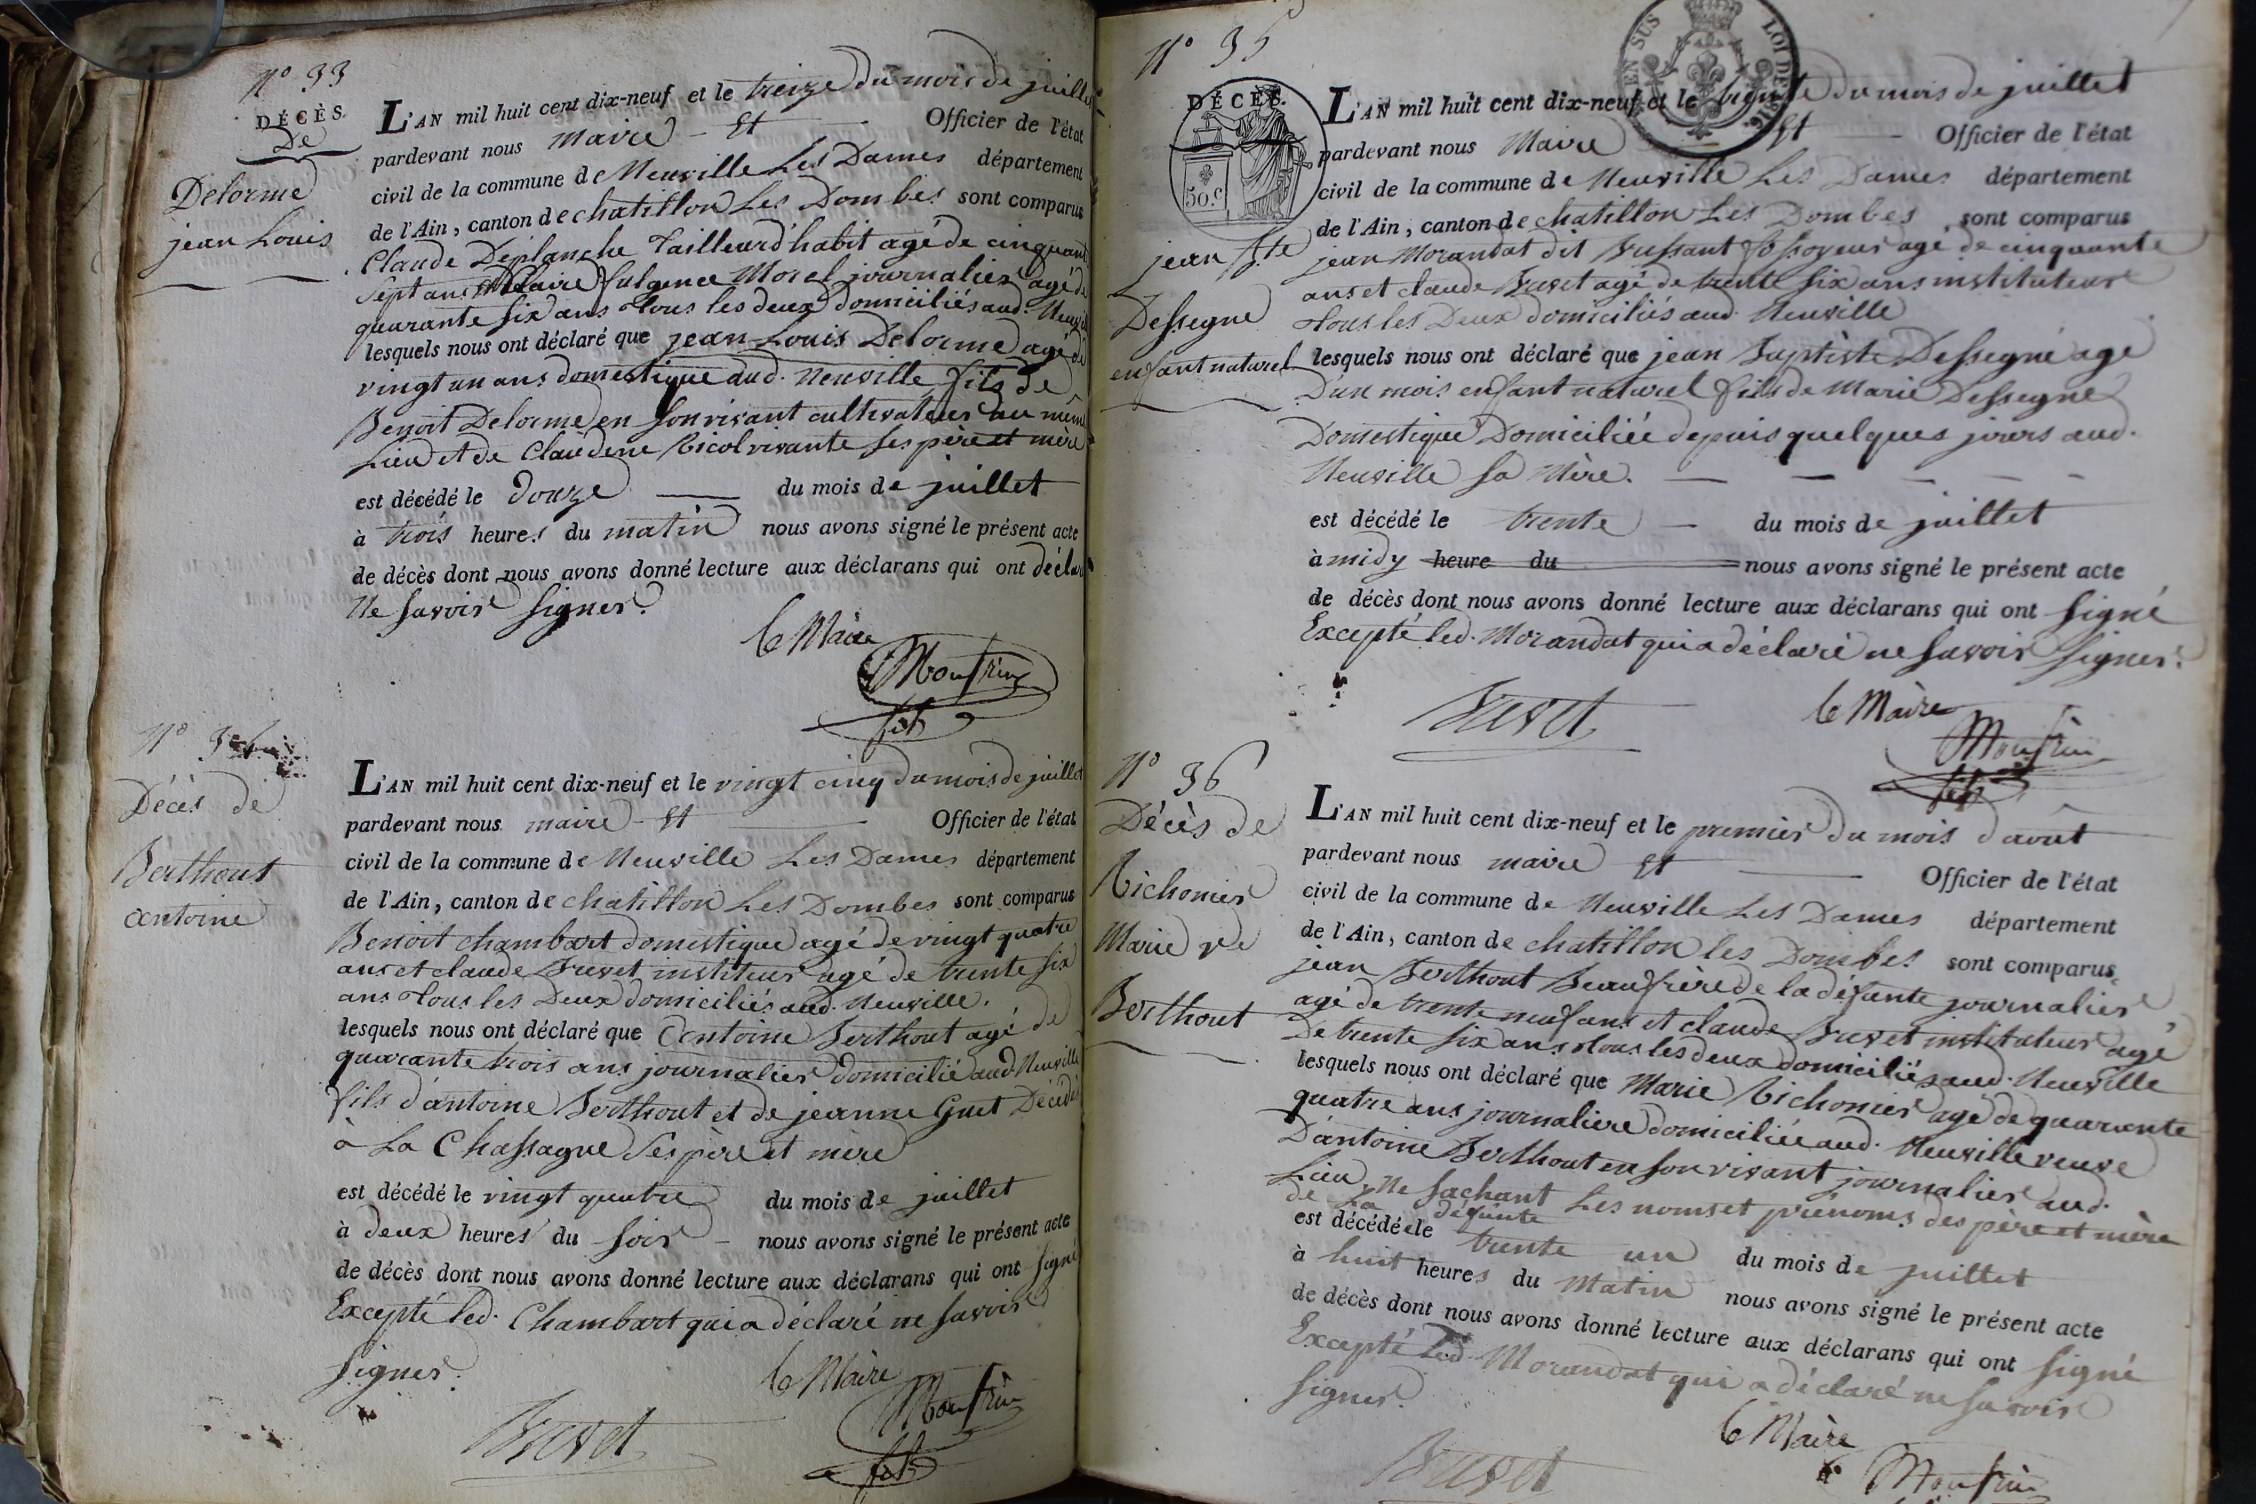 N° 33
DÉCÈS.
De
Delorme
jean Louis
L'AN mil huit cent dix-neuf et le treize du mois de juillet
pardevant nous maire et Officier de l'état
civil de la commune de Neuville Les Dames département
de l'Ain, canton de chatillon Les Dombes sont comparus
Claude Déplanche tailleur d'habit agé de cinquante
Sept ans et Claire fulgence Morel journalier agé de
quarante six ans tous les deux domiciliés aud. Neuville
lesquels nous ont déclaré que jean Louis Delorme agé de
vingt un ans domestique aud. Neuville fils de
Benoit Delorme en son vivant cultivateur au même
Lieu et de Claudene Nicol vivante ses père et mère
est décédé le douze du mois de juillet
à trois heures du matin nous avons signé le présent acte
de décès dont nous avons donné lecture aux déclarans qui ont déclaré
Ne savoir signer.
le Maire
Monfrin
fils
N° 34
Décès de
Berthout
antoine
L'AN mil huit cent dix-neuf et le vingt cinq du mois de juillet
pardevant nous maire et Officier de l'état
civil de la commune de Neuville Les Dames département
de l'Ain, canton de chatillon Les Dombes sont comparus
Benoit chambart domestique agé de vingt quatre
ans et claude Brevet instituteur agé de trente six
ans tous les Deux domiciliés aud. Neuville.
lesquels nous ont déclaré que antoine Berthout agé de
quarante trois ans journalier domicilié aud. Neuville
fils d'antoine Berthout et de jeanne Guet Décédés
à La Chassagne ses père et mère
est décédé le vingt quatre du mois de juillet
à deux heures du soir nous avons signé le présent acte
de décès dont nous avons donné lecture aux déclarans qui ont signé
Excepté led. Chambart qui a déclaré ne savoir
signer.
le Maire
Brevet
Monfrin
fils
N° 35
EN SUS
LOI DE 1816.
DÉCÈS.
50.c
jean Bte
Dessegne
enfant naturel
L'AN mil huit cent dix-neuf et le trente du mois de juillet
pardevant nous Maire et Officier de l'état
civil de la commune de Neuville Les Dames département
de l'Ain, canton de chatillon Les Dombes sont comparus
jean Morandat dit Bussant fossoyeur agé de cinquante
ans et claude Brevet agé de trente six ans instituteur
tous les Deux domiciliés aud. Neuville
lesquels nous ont déclaré que jean Baptiste Dessegne agé
D'un mois enfant naturel fils de Marie Dessegne
Domestique Domiciliée depuis quelques jours aud.
Neuville sa Mère.
est décédé le trente du mois de juillet
à midy heure du nous avons signé le présent acte
de décès dont nous avons donné lecture aux déclarans qui ont signé
Excepté led. Morandat qui a déclaré ne savoir signer.
Brevet
le Maire
Monfrin
fils
N° 36
Décès de
Richonier
Marie ve
Berthout
L'AN mil huit cent dix-neuf et le premier du mois d'août
pardevant nous maire et Officier de l'état
civil de la commune de Neuville Les Dames département
de l'Ain, canton de chatillon les Dombes sont comparus
jean Berthout Beaufrère de la défunte journalier
agé de trente neuf ans et claude Brevet instituteur agé
De trente six ans tous les deux domiciliés aud. Neuville
lesquels nous ont déclaré que Marie Richonier agé de quarante
quatre ans journaliere domiciliée aud. Neuville veuve
D'antoine Berthout en son vivant journalier aud.
Lieu, Ne sachant Les noms et prénoms des père et mère
de La défunte
est décédée le trente un du mois de juillet
à huit heures du Matin nous avons signé le présent acte
de décès dont nous avons donné lecture aux déclarans qui ont signé
Excepté Led. Morandat qui a déclaré ne savoir
signer.
le Maire
Brevet
Monfrin